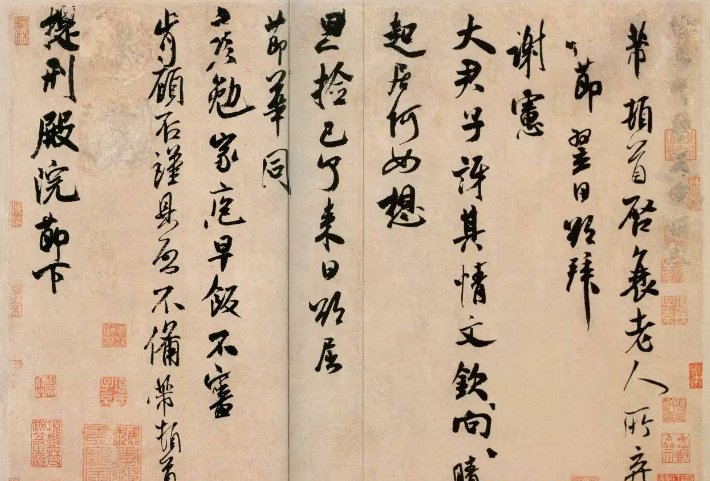 芾頓首启衰老人所弃
節翌日欲拜
謝憲
大尹子訝其情文欽向晴
起居何如想
撿已了來日欲屈
節華同
勉家庖早飯不審
肯顧否謹具启不備芾頓首
提刑殿院節下